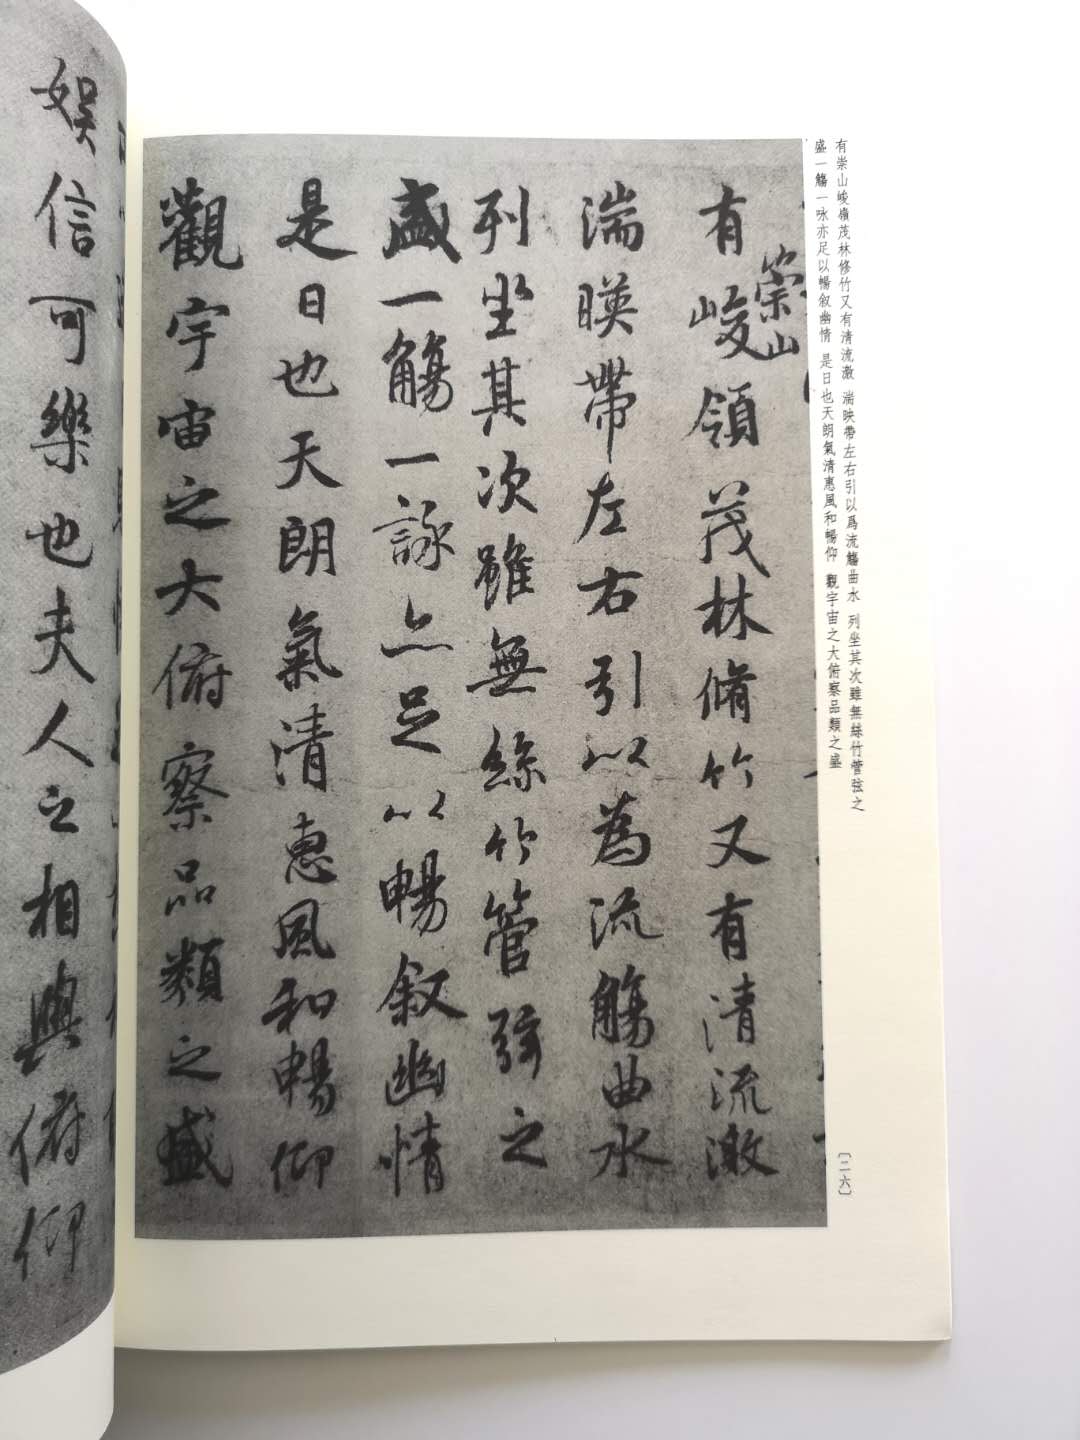 有崇山峻嶺茂林修竹又有清流激 湍映帶左右引以爲流觴曲水 列坐其次雖無絲竹管弦之
盛一觴一咏亦足以暢叙幽情 是日也天朗氣清惠風和暢仰 觀宇宙之大俯察品類之盛
〔二六〕
有崇山峻領茂林脩竹又有清流激
湍暎帶左右引以為流觴曲水
列坐其次雖無絲竹管弦之
盛一觴一詠亦足以暢叙幽情
是日也天朗氣清惠風和暢仰
觀宇宙之大俯察品類之盛
娱信可樂也夫人之相與俯仰